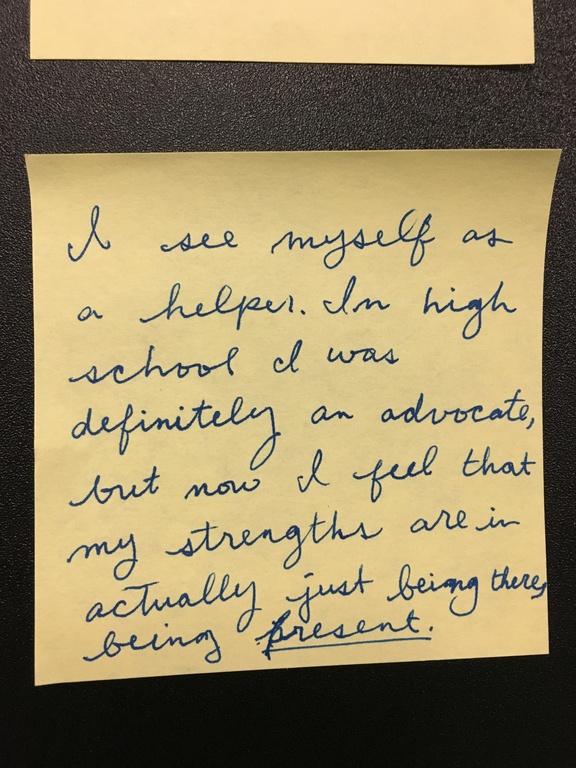 I see myself as
a helper. In high
school I was
definitely an advocate,
but now I feel that
my strengths are in
actually just being there,
being present.